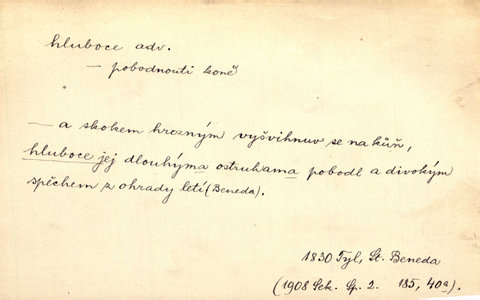 hluboce adv.
— pobodnouti koně
— a skokem hrozným vyšvihnuv se na kůň,
hluboce jej dlouhýma ostruhama pobodl a divokým
spěchem z ohrady letí (Beneda).
1830 Tyl, St. Beneda
(1908 Seb. Sp. 2. 185, 40a).